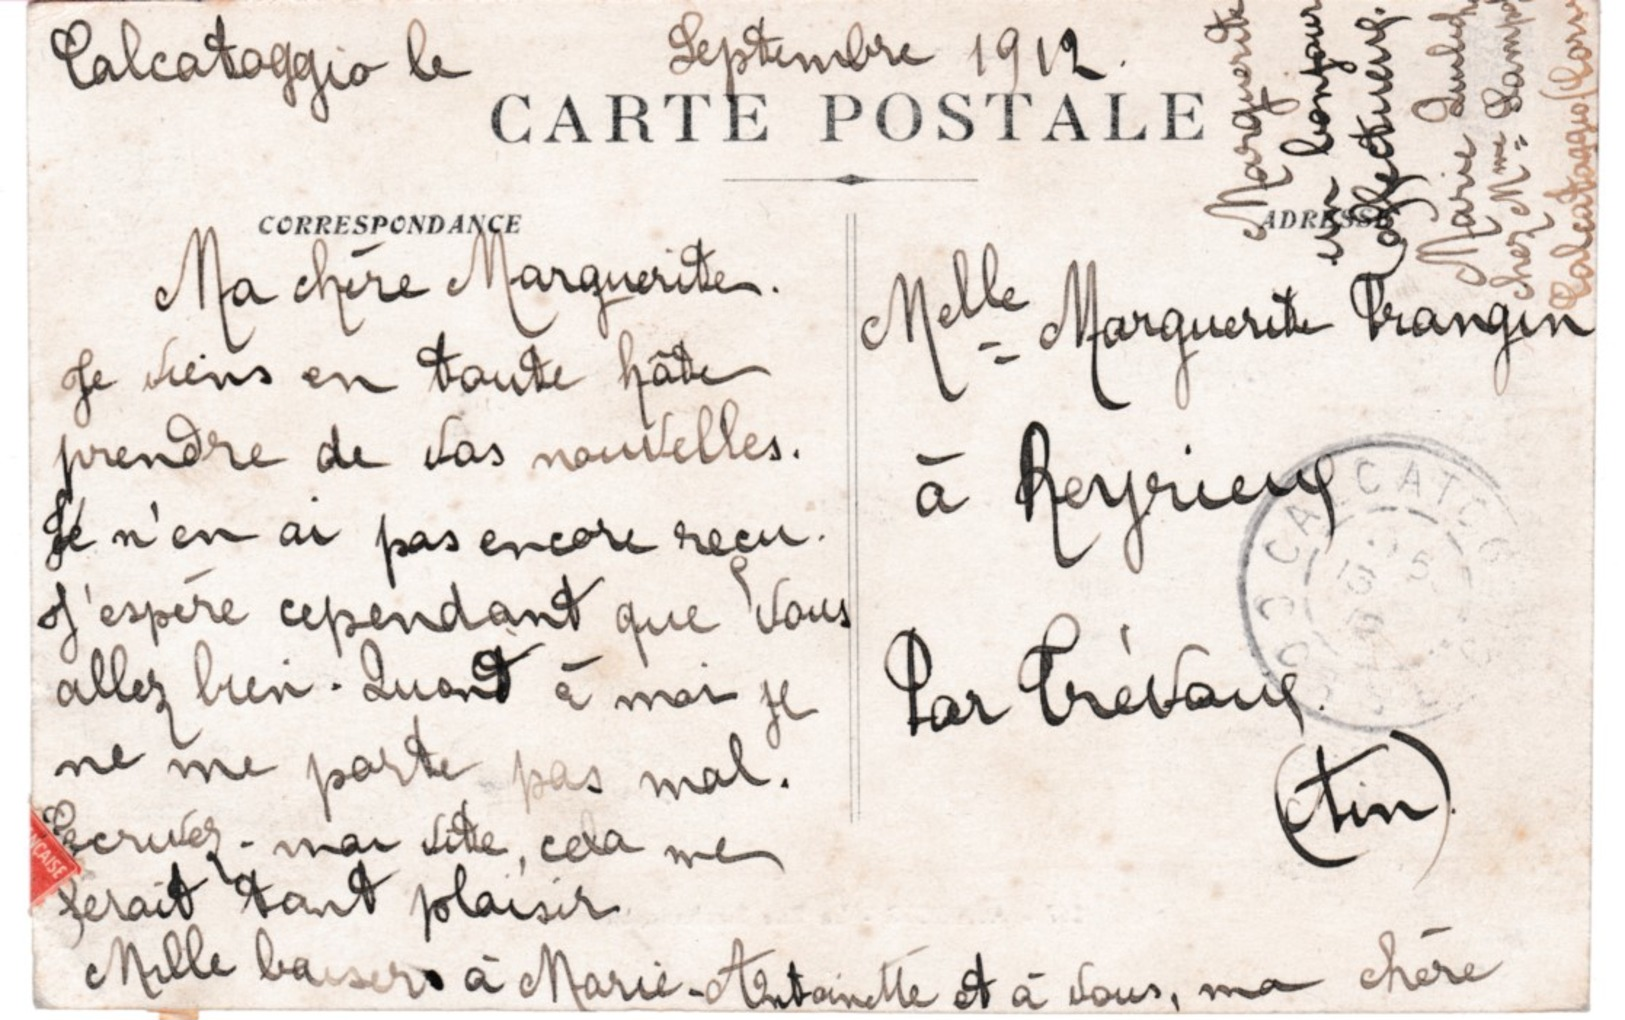 Calcatoggio le Septembre 1912.
CARTE POSTALE
CORRESPONDANCE
ADRESSE
Ma chère Marguerite.
Je viens en toute hâte
prendre de vos nouvelles.
Je n'en ai pas encore reçu.
J'espère cependant que vous
allez bien. Quant à moi je
ne me porte pas mal.
Ecrivez-moi vite, cela me
ferait tant plaisir
Mille baisers à Marie-Antoinette et à vous, ma chère
Marguerite
un bonjour
affectueux.
Marie
chez Mme
Calcatoggio (Corse
Melle Marguerite Trangin
à Reyrieux
Par Trévoux.
(Ain).
CALCATOG
CORSE